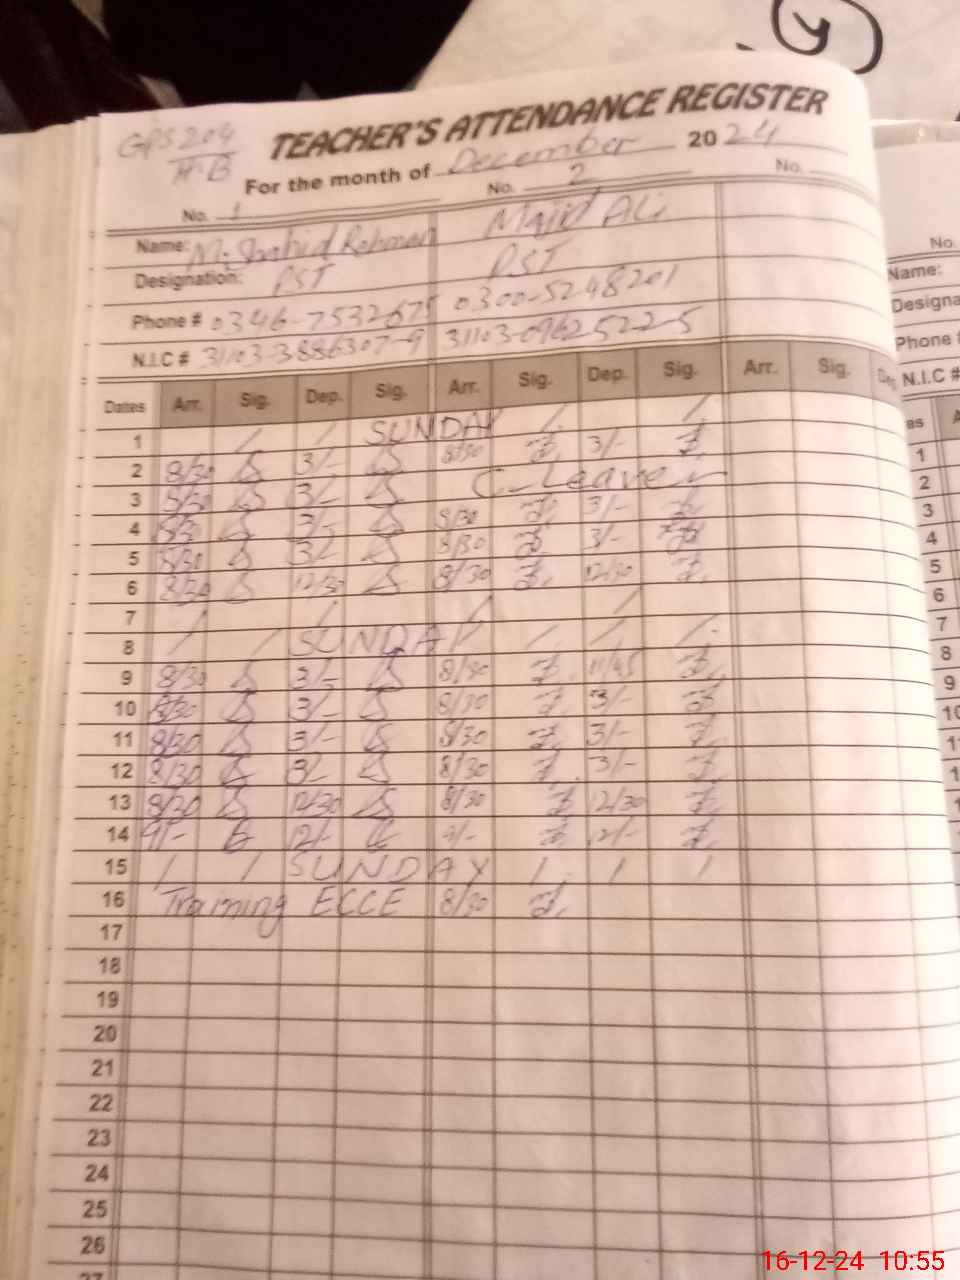 GPS 204
H-B
TEACHER'S ATTENDANCE REGISTER
For the month of December 2024
No. 1 No. 2 No.
Name: M. Shahid Rehman Majid Ali
Designation: PST PST
Phone # 0346-7532675 0300-5248201
N.I.C # 31103-3886307-9 31103-0962522-5
Dates Arr. Sig. Dep. Sig. Arr. Sig. Dep. Sig. Arr. Sig. Dep.
1 / / SUNDAY / /
2 8/30 3/- 8/30 3/-
3 8/30 3/- C-Leave
4 8/30 3/- 8/30 3/-
5 8/30 3/- 8/30 3/-
6 8/30 12/30 8/30 12/30
7 / / / /
8 / / SUNDAY / / /
9 8/30 3/- 8/30 11/45
10 8/30 3/- 8/30 3/-
11 8/30 3/- 8/30 3/-
12 8/30 3/- 8/30 3/-
13 8/30 12/30 8/30 12/30
14 9/- 12/- 9/- 12/-
15 / / SUNDAY / / /
16 Training ECCE 8/30
17
18
19
20
21
22
23
24
25
26
27
No.
Name:
Designa
Phone
N.I.C #
es A
1
2
3
4
5
6
7
8
9
10
16-12-24 10:55